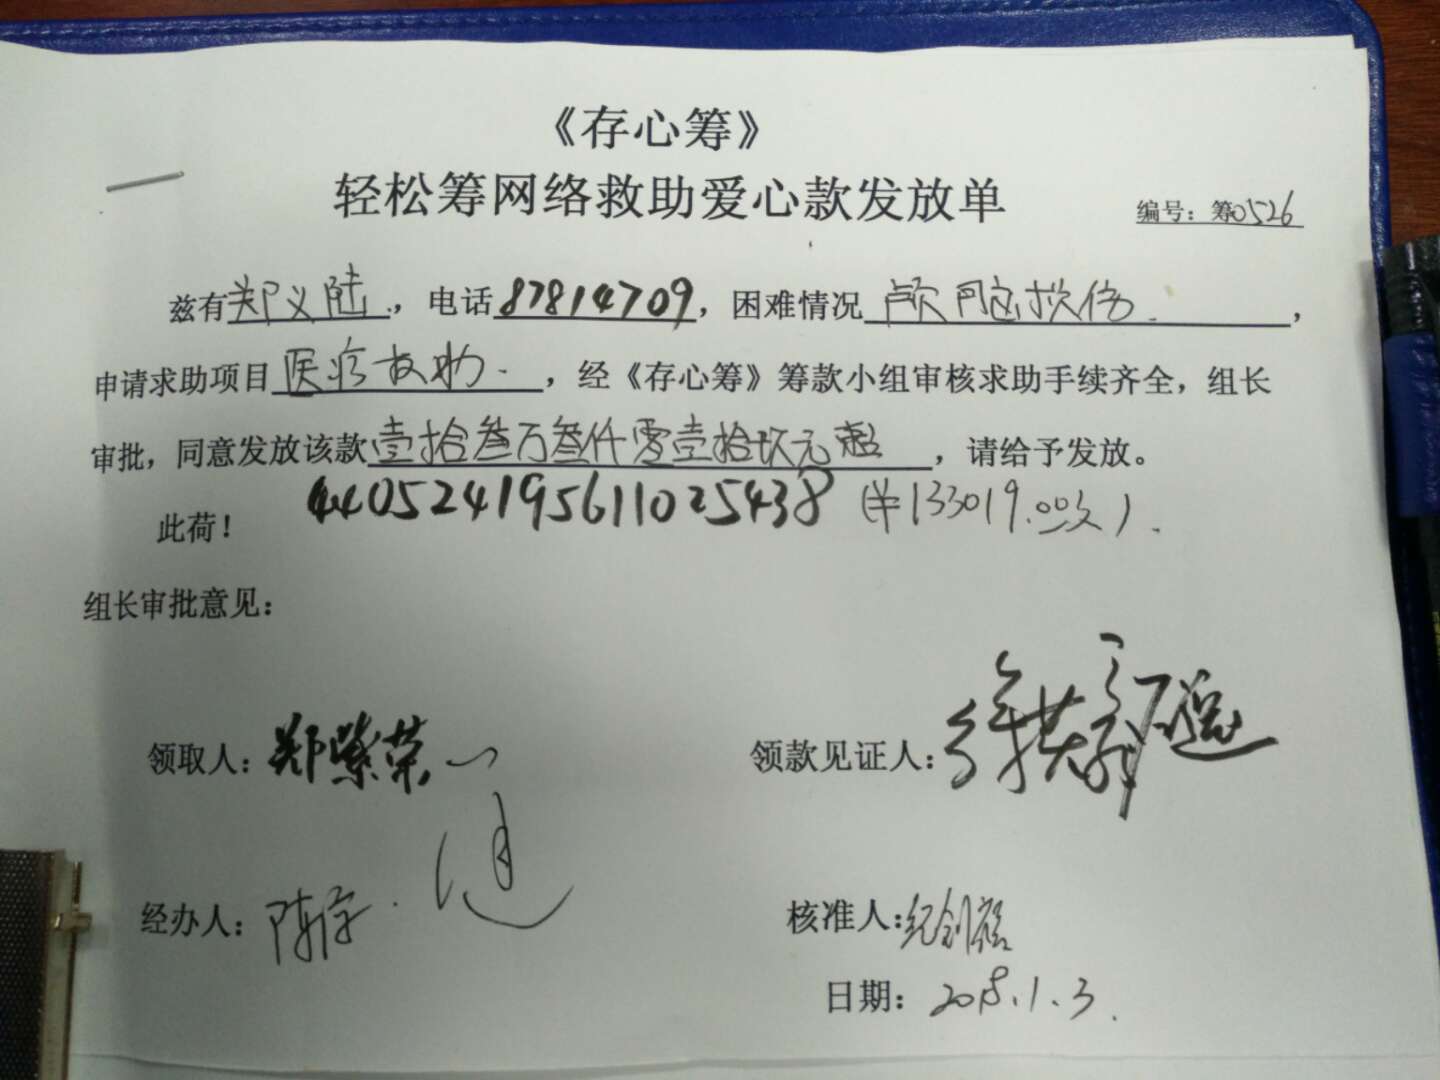 《存心筹》
轻松筹网络救助爱心款发放单
编号：筹0526
兹有郑义陆，电话87814709，困难情况颅脑损伤.，
申请求助项目医疗救助.，经《存心筹》筹款小组审核求助手续齐全，组长
审批，同意发放该款壹拾叁万叁仟零壹拾玖元整，请给予发放。
此荷！ 440524195611025438 (¥133019.00元).
组长审批意见：
领取人：郑紫荣 领款见证人：
经办人：陈 核准人：纪剑
日期：2018.1.3.